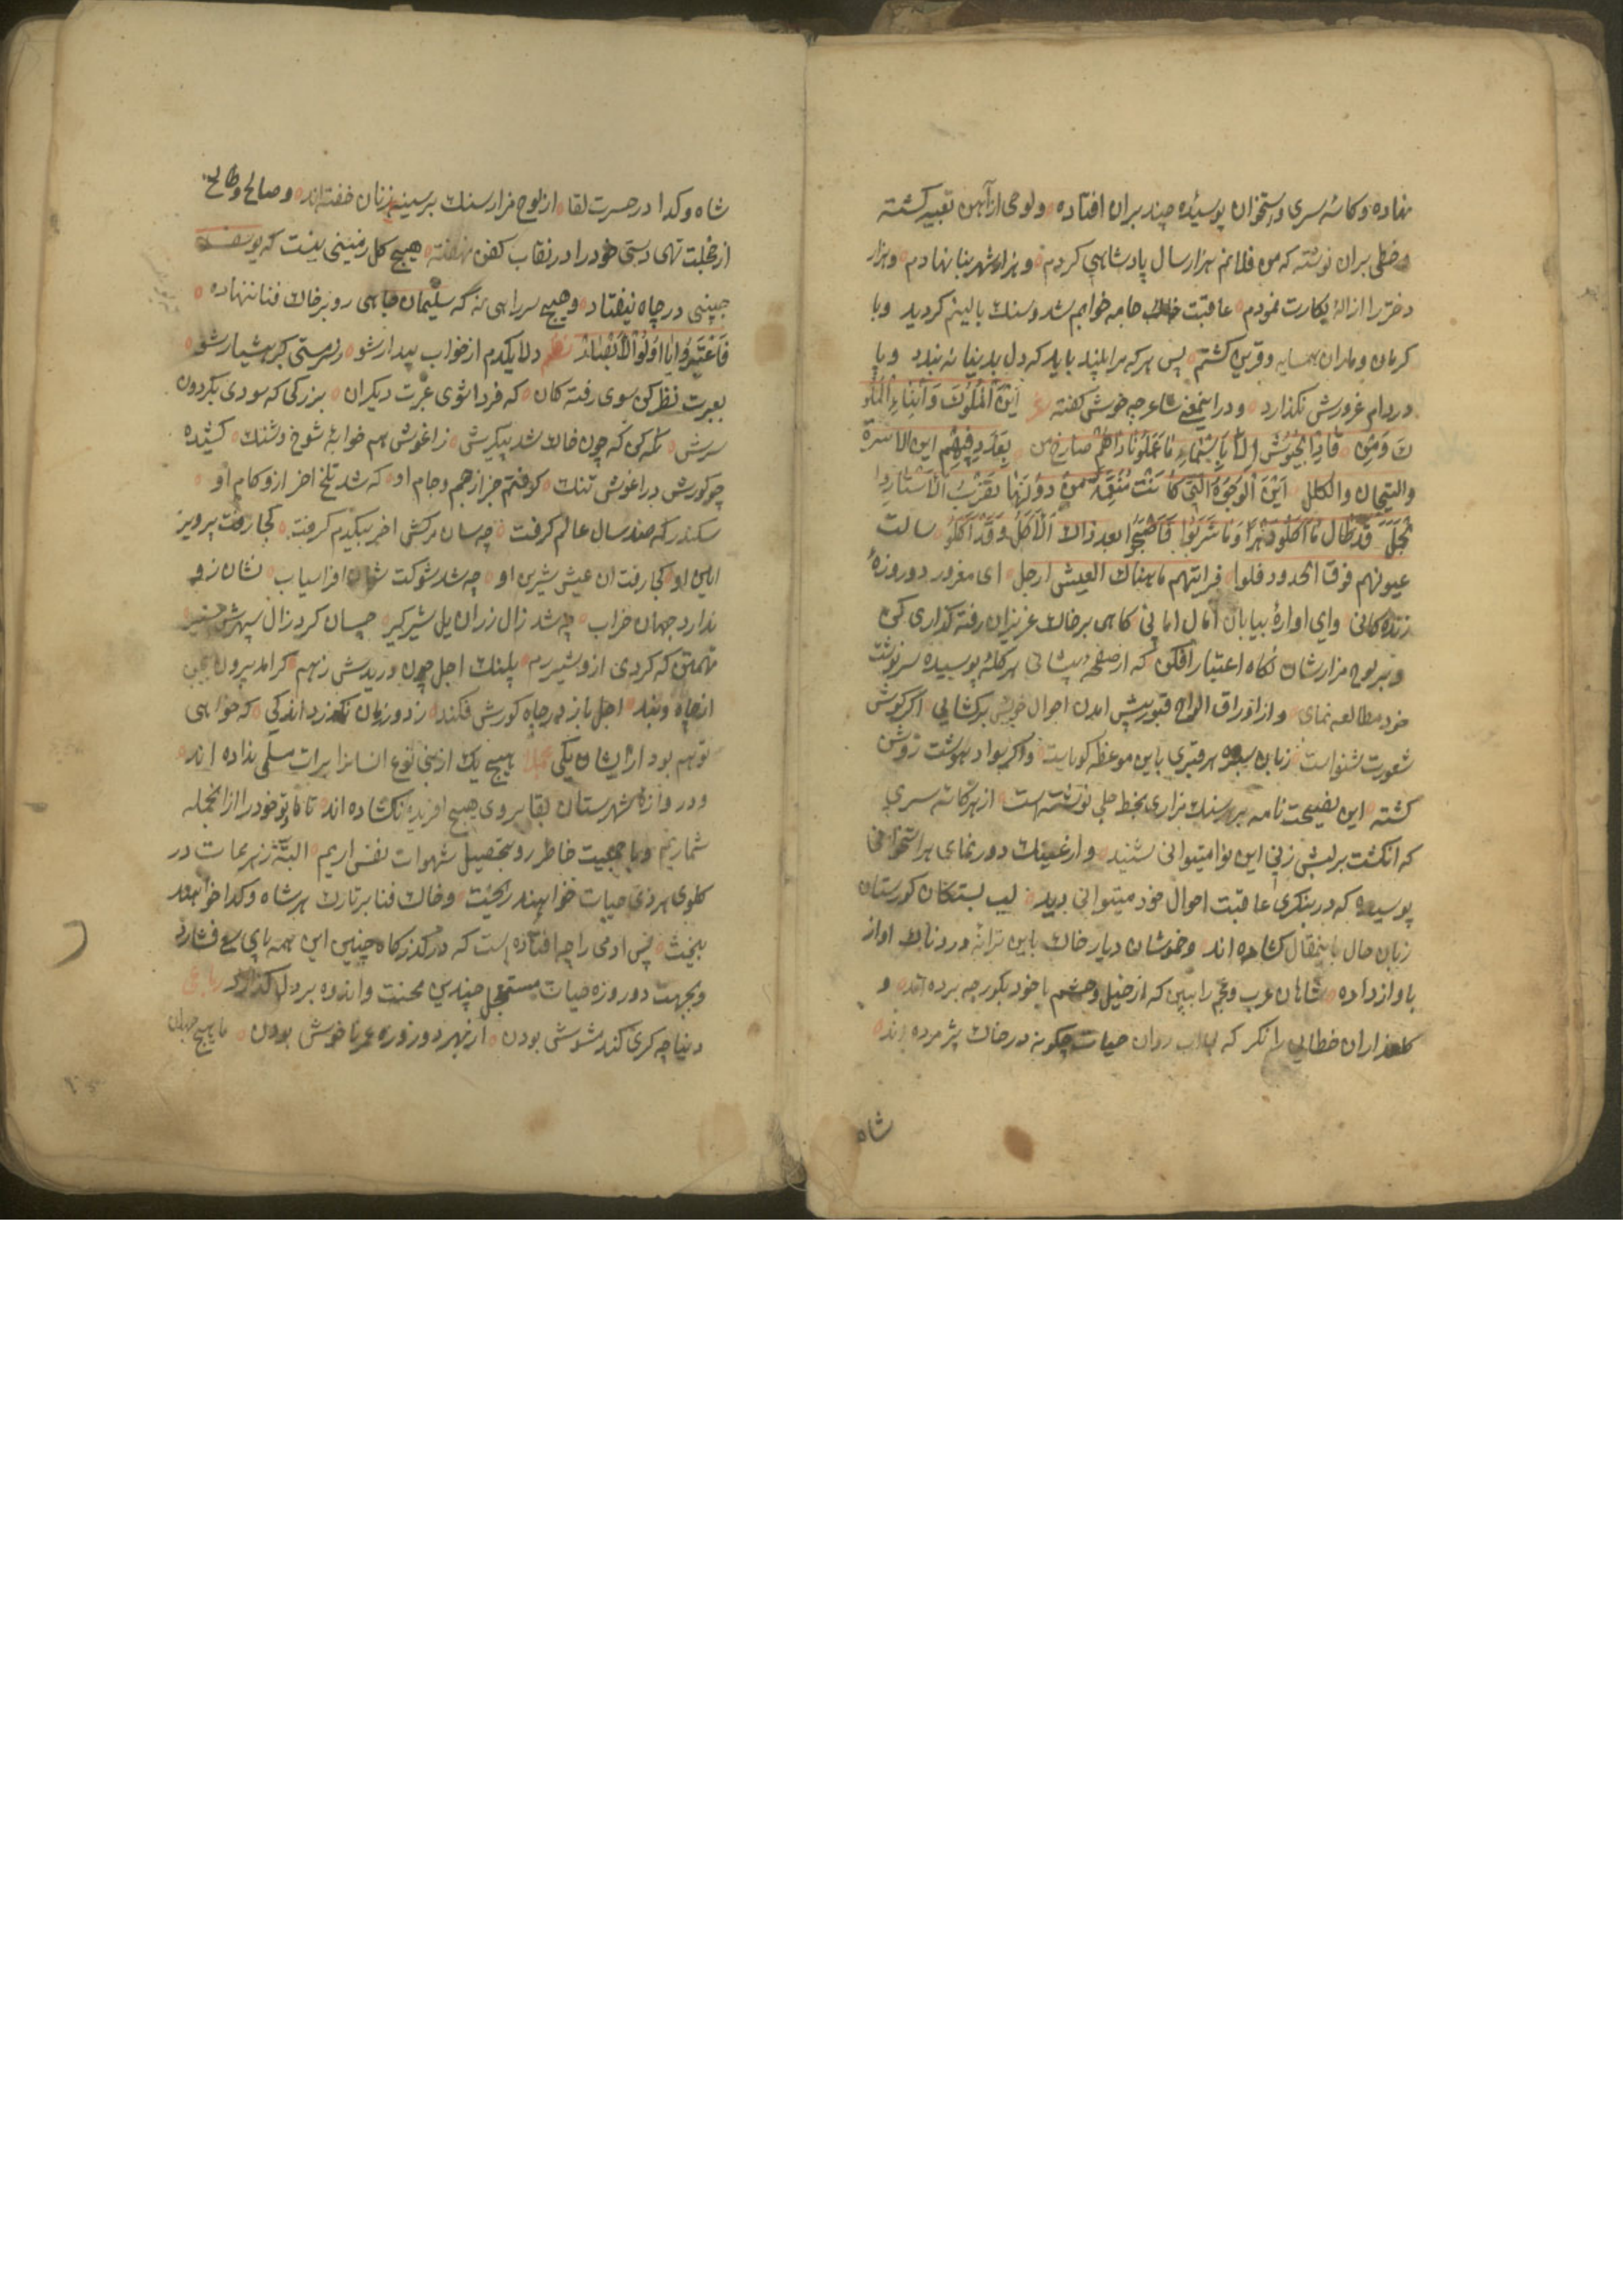 نهاده و کاسه سری و استخوان پوسیده چند بران افتاده و لوحی از آهن تعبیه کشته
و خطی بران نوشته که من فلانم هزار سال پادشاهی کردم و هزار شهر بنا نهادم و هزار
دختر را ازاله بکارت نمودم عاقبت خاک جامه خوابم شد و سنک بالینم کردید و با
کرمان و ماران همسایه و قرین کشتم پس هر که مرا بیند باید که دل بدنیا نه بندد و پا
در دام غرورش نکذارد و درا ینمعنی شاعر چه خوش کفته این الملوک و ابناء الملو
ک ومن قاد الجیوش الا یا بئسما عملوا ناداهم صارخ من بعد دفنهم این الاسرة
والتیجان والکلل این الوجوه التی کانت من دونها تضرب الاستار وا
لکلل قد طال ما اکلوا دهرا وما شربوا فاصبحوا بعد ذاک الاکل وقد اکلوا سالت
عیونهم فوق الخدود فلوا فرایتهم ما هناک العیش ارجل ای مغرور دو روزهٔ
زنده کانی وای اوارهٔ بیابان امال امانی کاهی برخاک عزیزان رفته کذاری کن
و بر لوح مزارشان نکاه اعتبار افکن که از صفحه پیشانی هر کلهٔ پوسیده سرنوشت
خود مطالعه نمای و از اوراق الواح قبور پیش امدن احوال خویش برکشایی اکر کوش
شعورت شنواست زبان سبزه هر قبری باین موعظه کویاست و اکر سواد بهوشت روشن
کشته این نصیحت نامه بر هر سنک مزاری بخط جلی نوشته است از هر کاسه سری
که انکشت برلبش زنی این نوا میتوانی شنید و از عینک دورنمای هر استخوانی
پوسیده که در بنکری عاقبت احوال خود میتوانی دید لب بستکان کورستان
زبان حال باینمقال کشاده اند و خموشان دیار خاک باین ترانه دردناک اواز
با واز داده شاهان عرب و عجم را ببین که از خیل و حشم با خود بکور چه برده اند و
کلعذاران خطایی را نکر که روان حیات چکونه در خاک پژمرده اند
شاه
شاه و کدا در حسرت لقا از لوح مزار سنک بر سینه زنان خفته اند و صالح و طالح
از خجلت تهی دستی خود را در نقاب کفن نهفته هیچ کل زمینی نیست که یوسف
جبینی در چاه نیفتاد و هیچ سر راهی نه که سلیمان جاهی رو بر خاک فنا ننهاده
فاعتبروا یا اولو الابصار نظم دلا یکدم از خواب بیدار شو زسرمستی کبر هشیار شو
بعبرت نظر کن سوی رفته کان که فردا شوی عبرت دیکران بزرکی که سودی بکردون
سرش نکه کن که چون خاک شد پیکرش زاغوش هم خوابهٔ شوخ و شنک کشیده
چو کورش در اغوش تنک کرفتم جز از جم و جام او که شد تلخ اخر ازو کام او
سکندر که صد سال عالم کرفت چه سان مرکش اخر بیکدم کرفت کجا رفت پرویز
این او کجا رفت ان عیش شیرین او چه شد شوکت شان افراسیاب نشان زو
ندارد جهان خراب چه شد زال زر ان یل شیرکیر چسان کرد زال سپهرش
تهمتن که کردی ازو شیر رم پلنک اجل چون دریدش زهم کر امد برون
از چاه و بند اجل باز در چاه کورش فکند زدور زمان نکذرد اندکی که خواهی
تو هم بود ازایشان یکی مجملا هیچ یک از بنی نوع انسانرا برات مسلمی نداده اند
و دروازهٔ شهرستان بقا بروی هیچ افریده نکشاده اند تا ما و تو خود را از انجمله
شماریم و با جمعیت خاطر رو بتحصیل شهوات نفس اریم البته زهر ممات در
کلوی هر ذی حیات خواهند ریخت و خاک فنا بر تارک هر شاه و کدا خواهند
بیخت پس ادمی را چه افتاده است که در کذرکاه چنین این همه پای می فشارد
و بجهت دو روزه حیات مستعجل چندین محنت و اندوه بر دل کذارد رباعی
دنیا چه کری کند مشوش بودن از بهر دو روزه عمر ناخوش بودن ما هیچ جهان